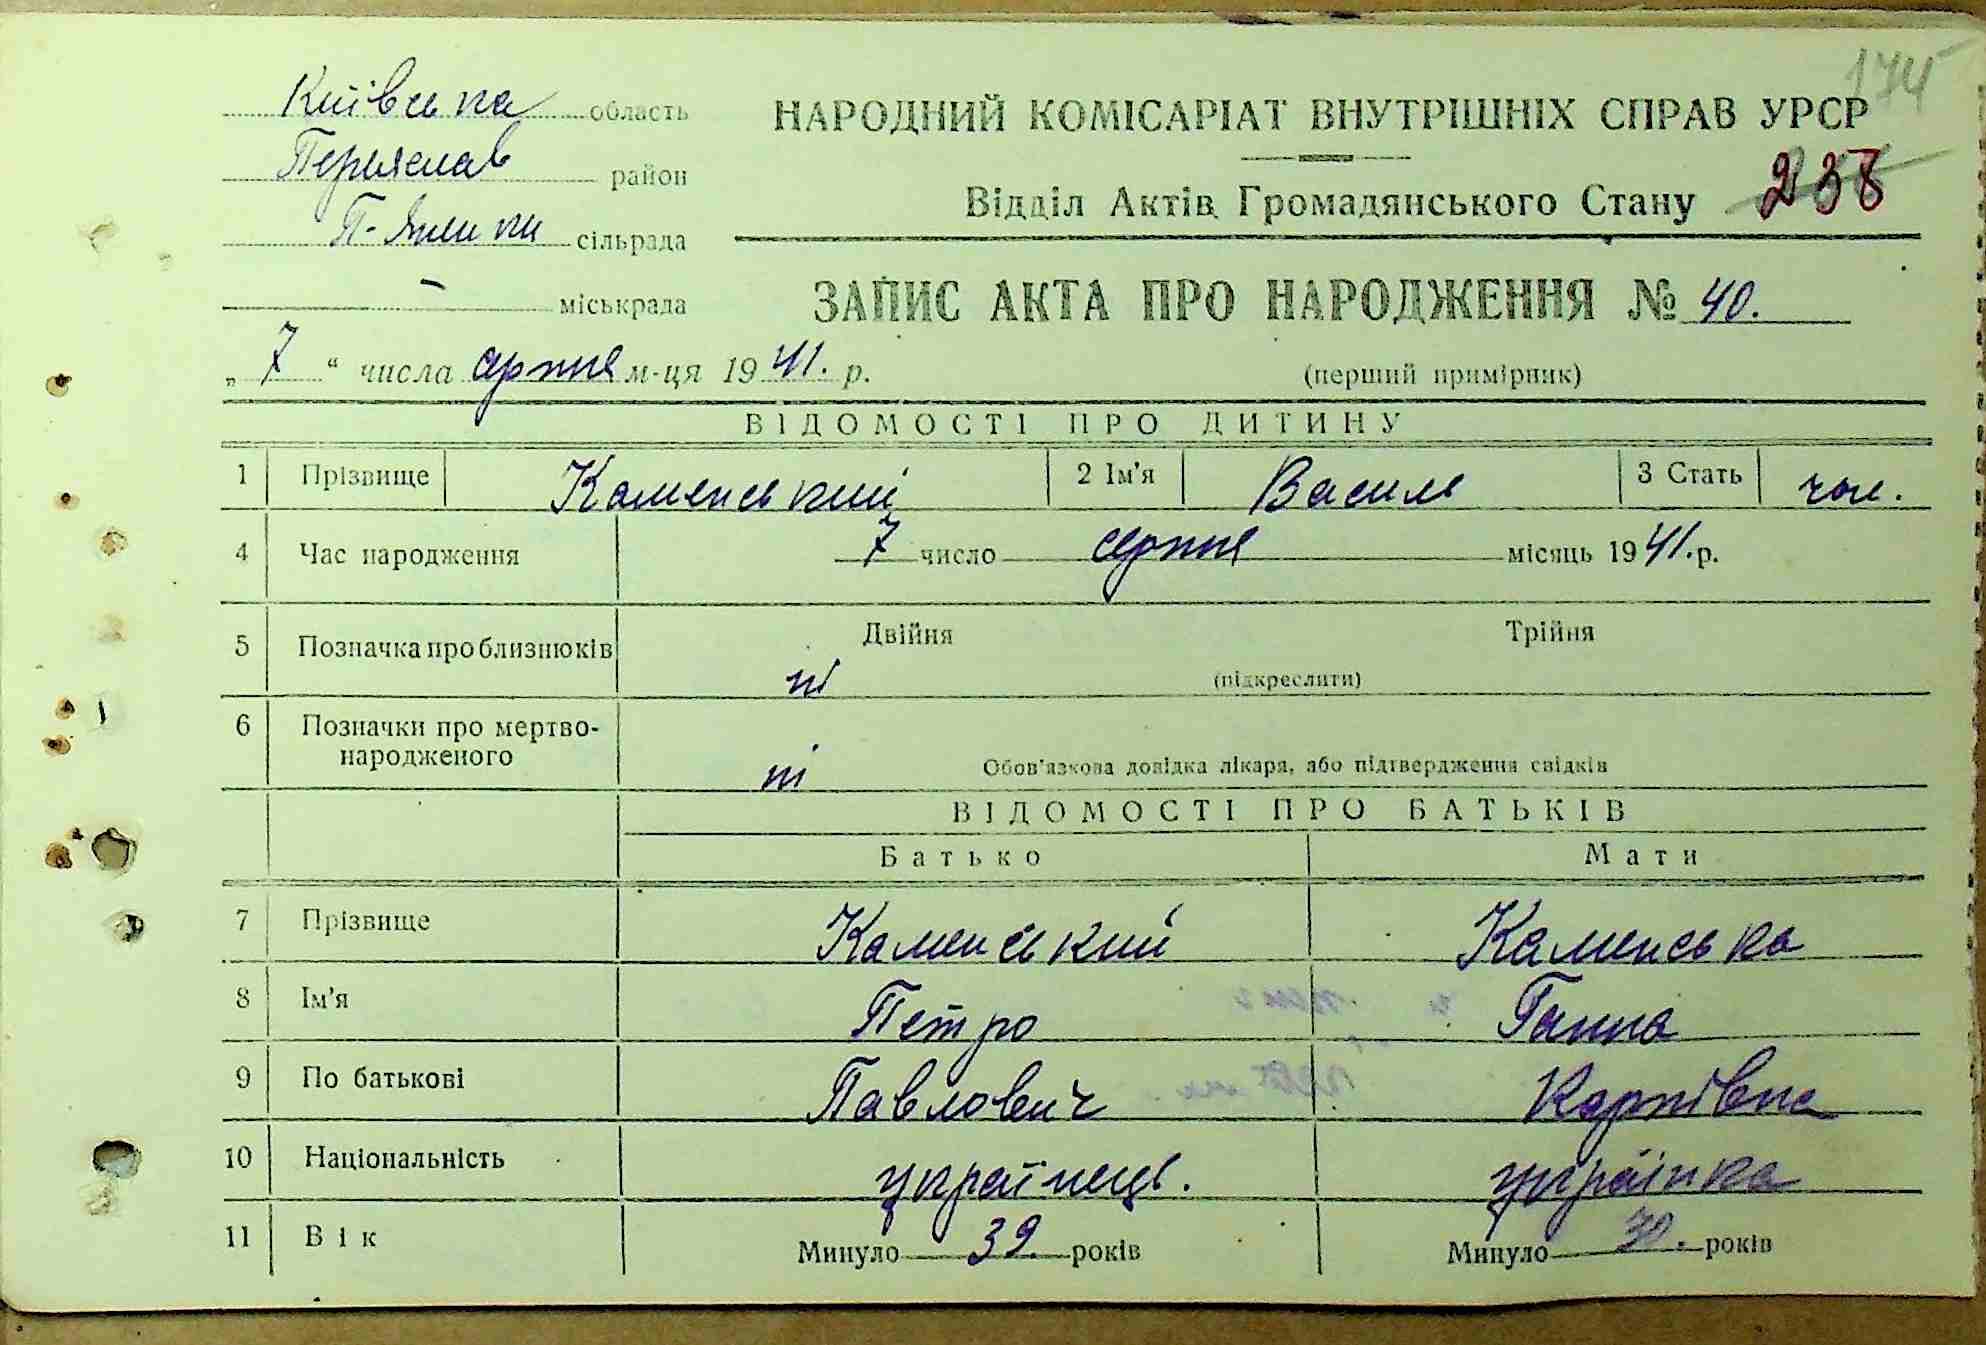 174
Київська область
НАРОДНИЙ КОМІСАРІАТ ВНУТРІШНІХ СПРАВ УРСР
Переяслав район
Відділ Актів Громадянського Стану 238
сільрада
— міськрада
ЗАПИС АКТА ПРО НАРОДЖЕННЯ № 40.
„ 7 “ числа серпня м-ця 1941. р.
(перший примірник)
ВІДОМОСТІ ПРО ДИТИНУ
1 Прізвище Каменський 2 Ім'я Василь 3 Стать чол.
4 Час народження 7 число серпня місяць 1941.р.
5 Позначка про близнюків Двійня Трійня
ні (підкреслити)
6 Позначки про мертво-
народженого ні Обов'язкова довідка лікаря, або підтвердження свідків
ВІДОМОСТІ ПРО БАТЬКІВ
Батько Мати
7 Прізвище Каменський Каменська
8 Ім'я Петро Ганна
9 По батькові Павлович Карпівна
10 Національність українець. українка
11 Вік Минуло 39. років Минуло 30. років